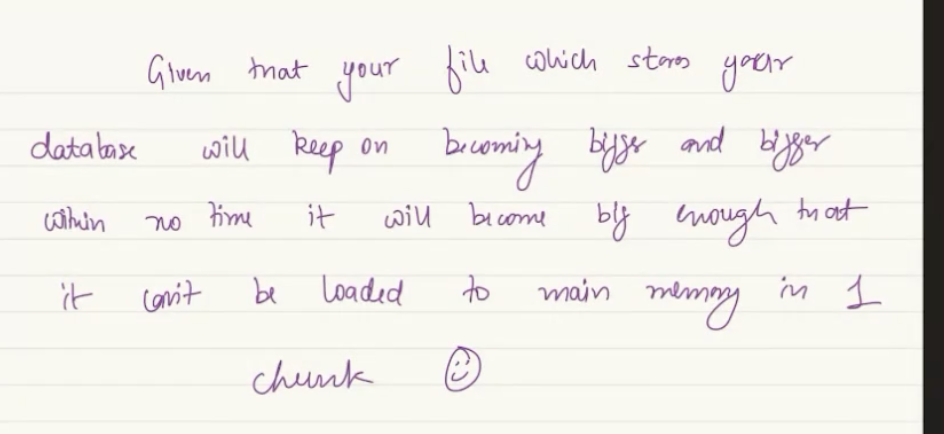 Given that your file which stores your
database will keep on becoming bigger and bigger
within no time it will become big enough that
it can't be loaded to main memory in 1
chunk